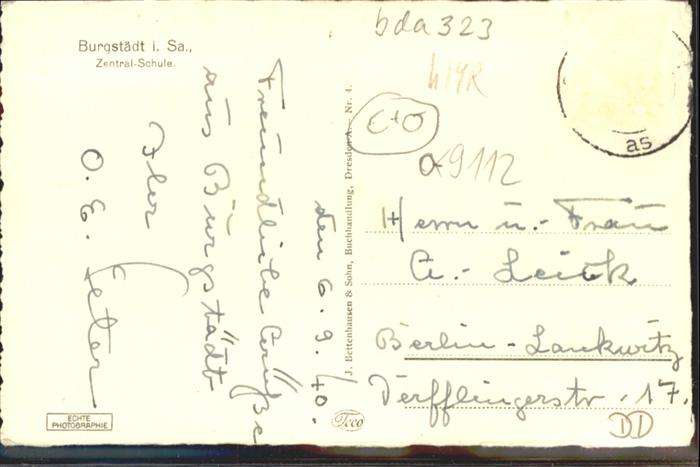 Burgstädt i. Sa.,
Zentral-Schule.
den 6.9.40.
Freundliche Grüße
aus Burgstädt
Ihr
O. E.
ECHTE
PHOTOGRAPHIE
J. Bettenhausen & Sohn, Buchhandlung, Dresden A. - Nr. 4.
Teco
bda323
as
α9112
Herrn u. Frau
Berlin-Lankwitz
Derfflingerstr. 17.
DD